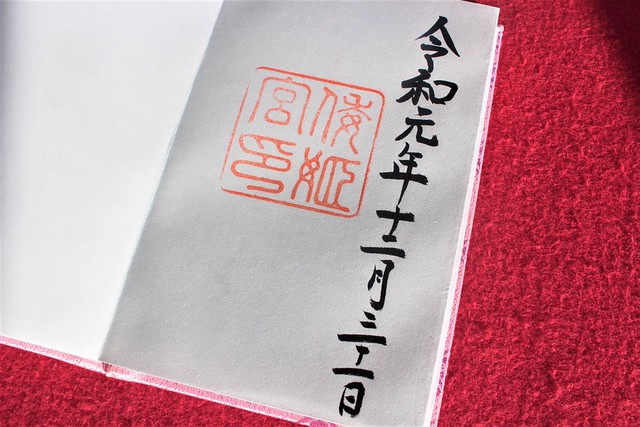 令和元年十二月三十一日
倭姫
宮印